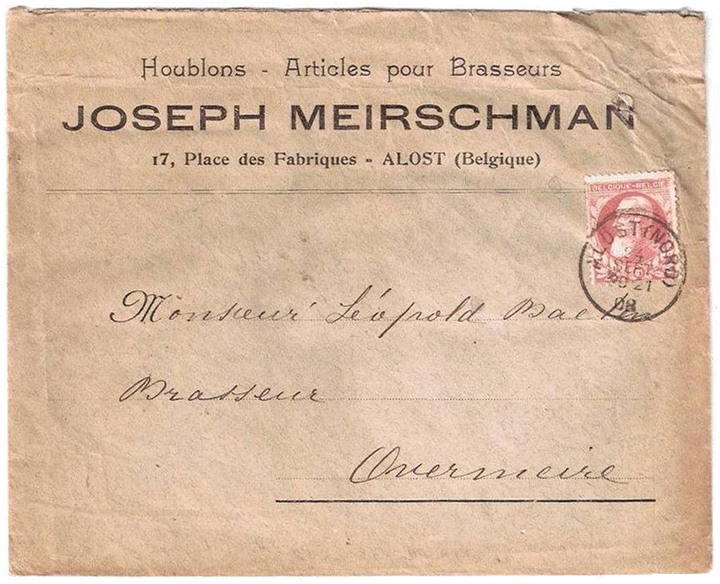 Houblons - Articles pour Brasseurs
JOSEPH MEIRSCHMAN
17, Place des Fabriques - ALOST (Belgique)
BELGIQUE·BELGIË
ALOST (NORD)
08
Monsieur Léopold
Brasseur
Overmeire